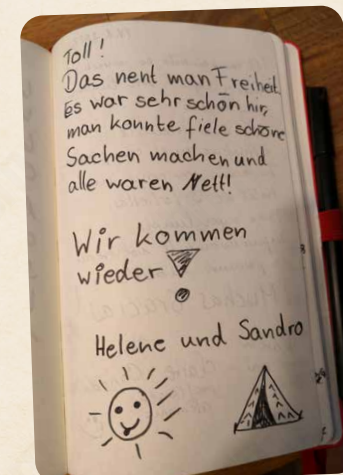 Toll!
Das nent man Freiheit.
Es war sehr schön hir,
man konnte fiele schöne
Sachen machen und
alle waren Nett!
Wir kommen
wieder!
Helene und Sandro